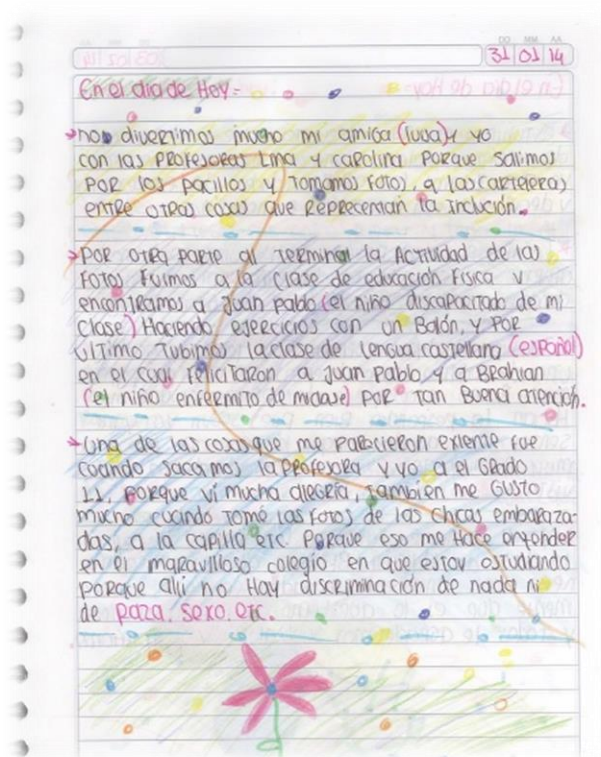 DD MM AA
31 01 14
En el dia de Hoy =
nos divertimos mucho mi amiga (luua) y yo
con las PROFesoras Lina y carolina PORque salimos
POR los pacillos y Tomamos FOTOS, a las carteleras
entre OTRas cosas que RePRecentan la Inclución.
POR OTRa parte al Terminal la Actividad de las
Fotos Fuimos a la clase de educación Fisica y
encontramos a Juan pablo (el niño discapacitado de mi
clase) Haciendo ejercicios con un Balón, y POR
ULTIMO Tubimos la clase de Lengua castellana (español)
en el cual Felicitaron a Juan Pablo y a BRahian
(el niño enfermito de miclase) POR Tan Buena atención.
Una de las cosas que me parecieron exlente Fue
cuando sacamos la PROFesora y yo a el GRado
11. PORque vi mucha alegria, Tambien me GUSTO
mucho cuando Tomé las FOTOS de las chicas embaraza-
das, a la capilla etc. Porque eso me Hace entender
en el maravilloso colegio en que estoy estudiando
Porque alli no Hay discriminación de nada ni
de Raza. Sexo. etc.